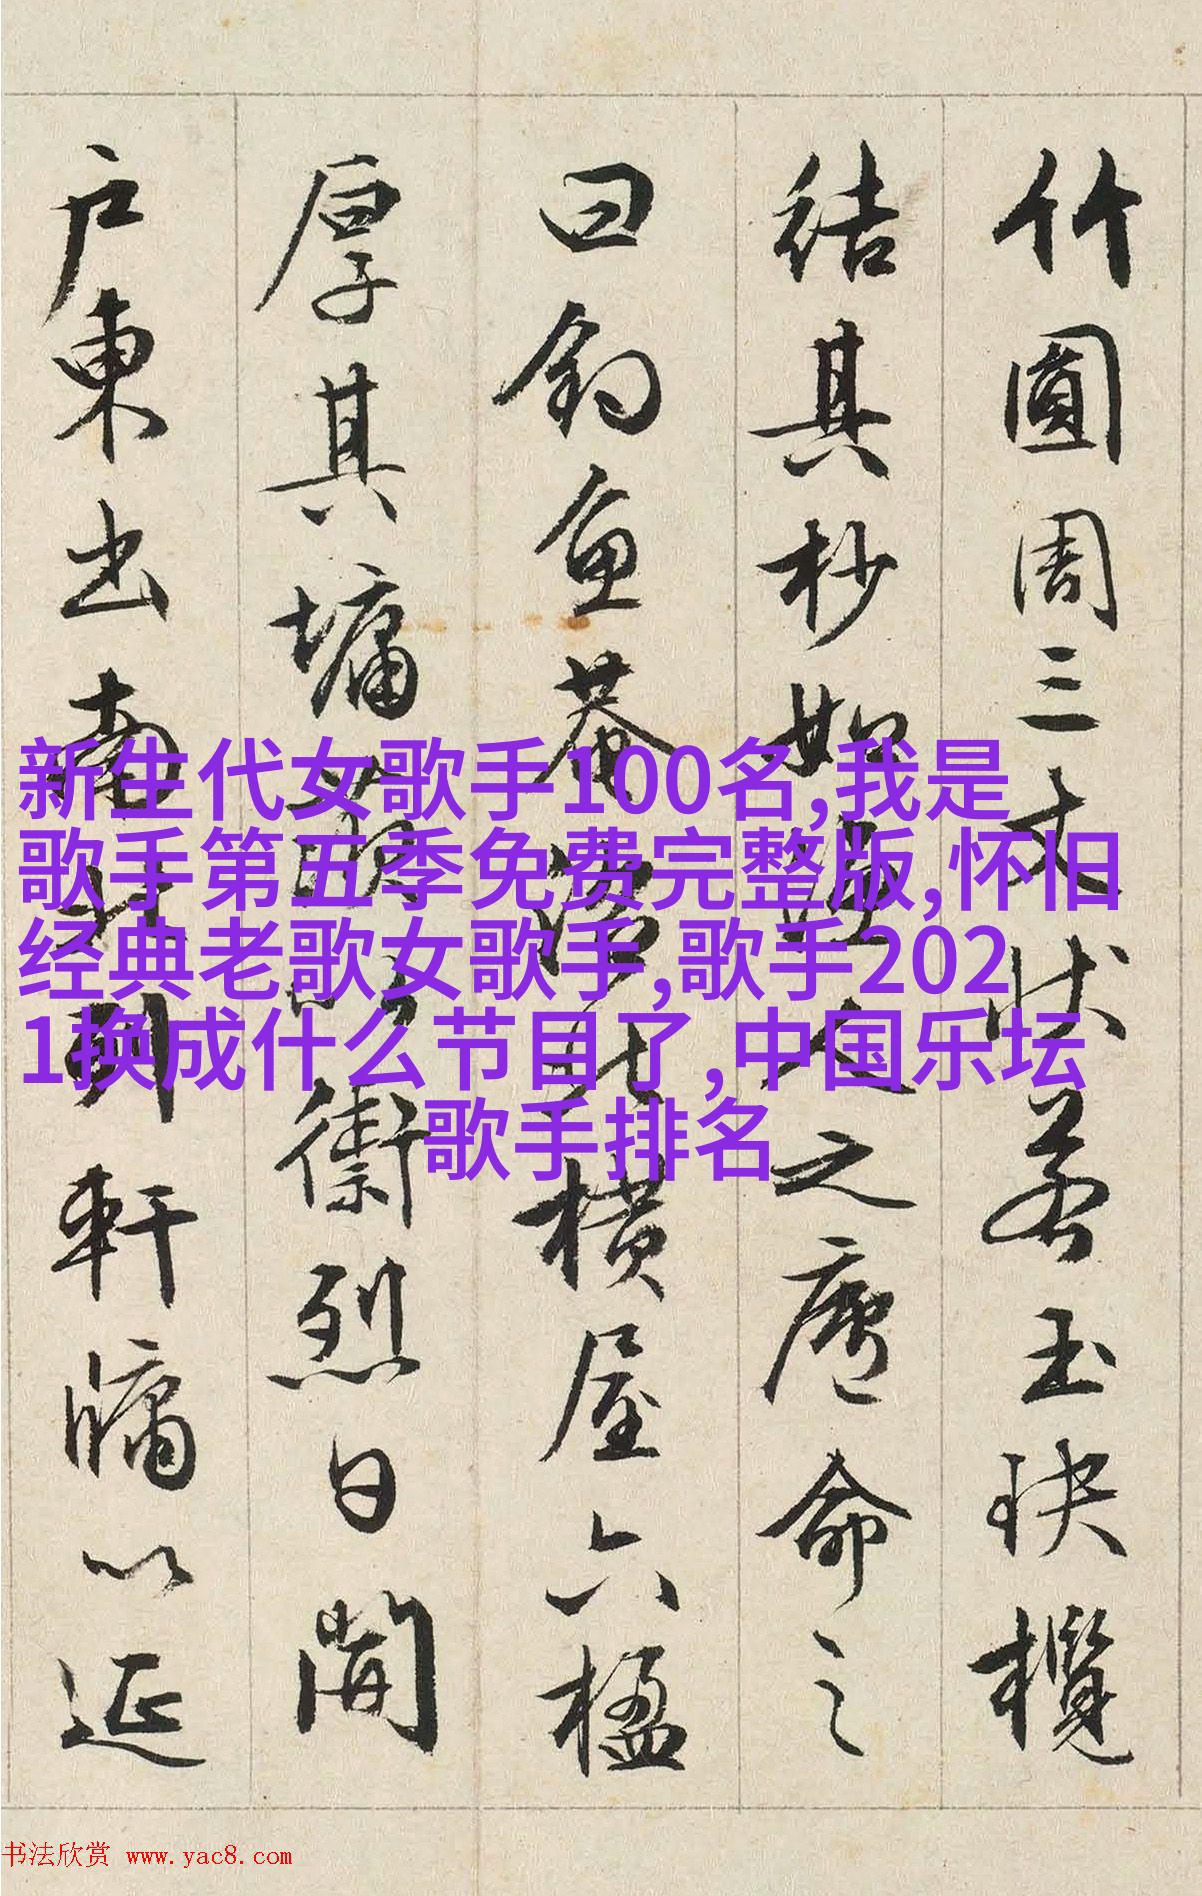 竹圓周三丈狀若玉玦欖
結其杪如
之廬命之
曰釣魚菴
橫屋六楹
厚其墉
衛烈日開
户東出南
軒牖以延
新生代女歌手100名,我是
歌手第五季免费完整版,怀旧
经典老歌女歌手,歌手202
1换成什么节目了,中国乐坛
歌手排名
书法欣赏 www.yac8.com